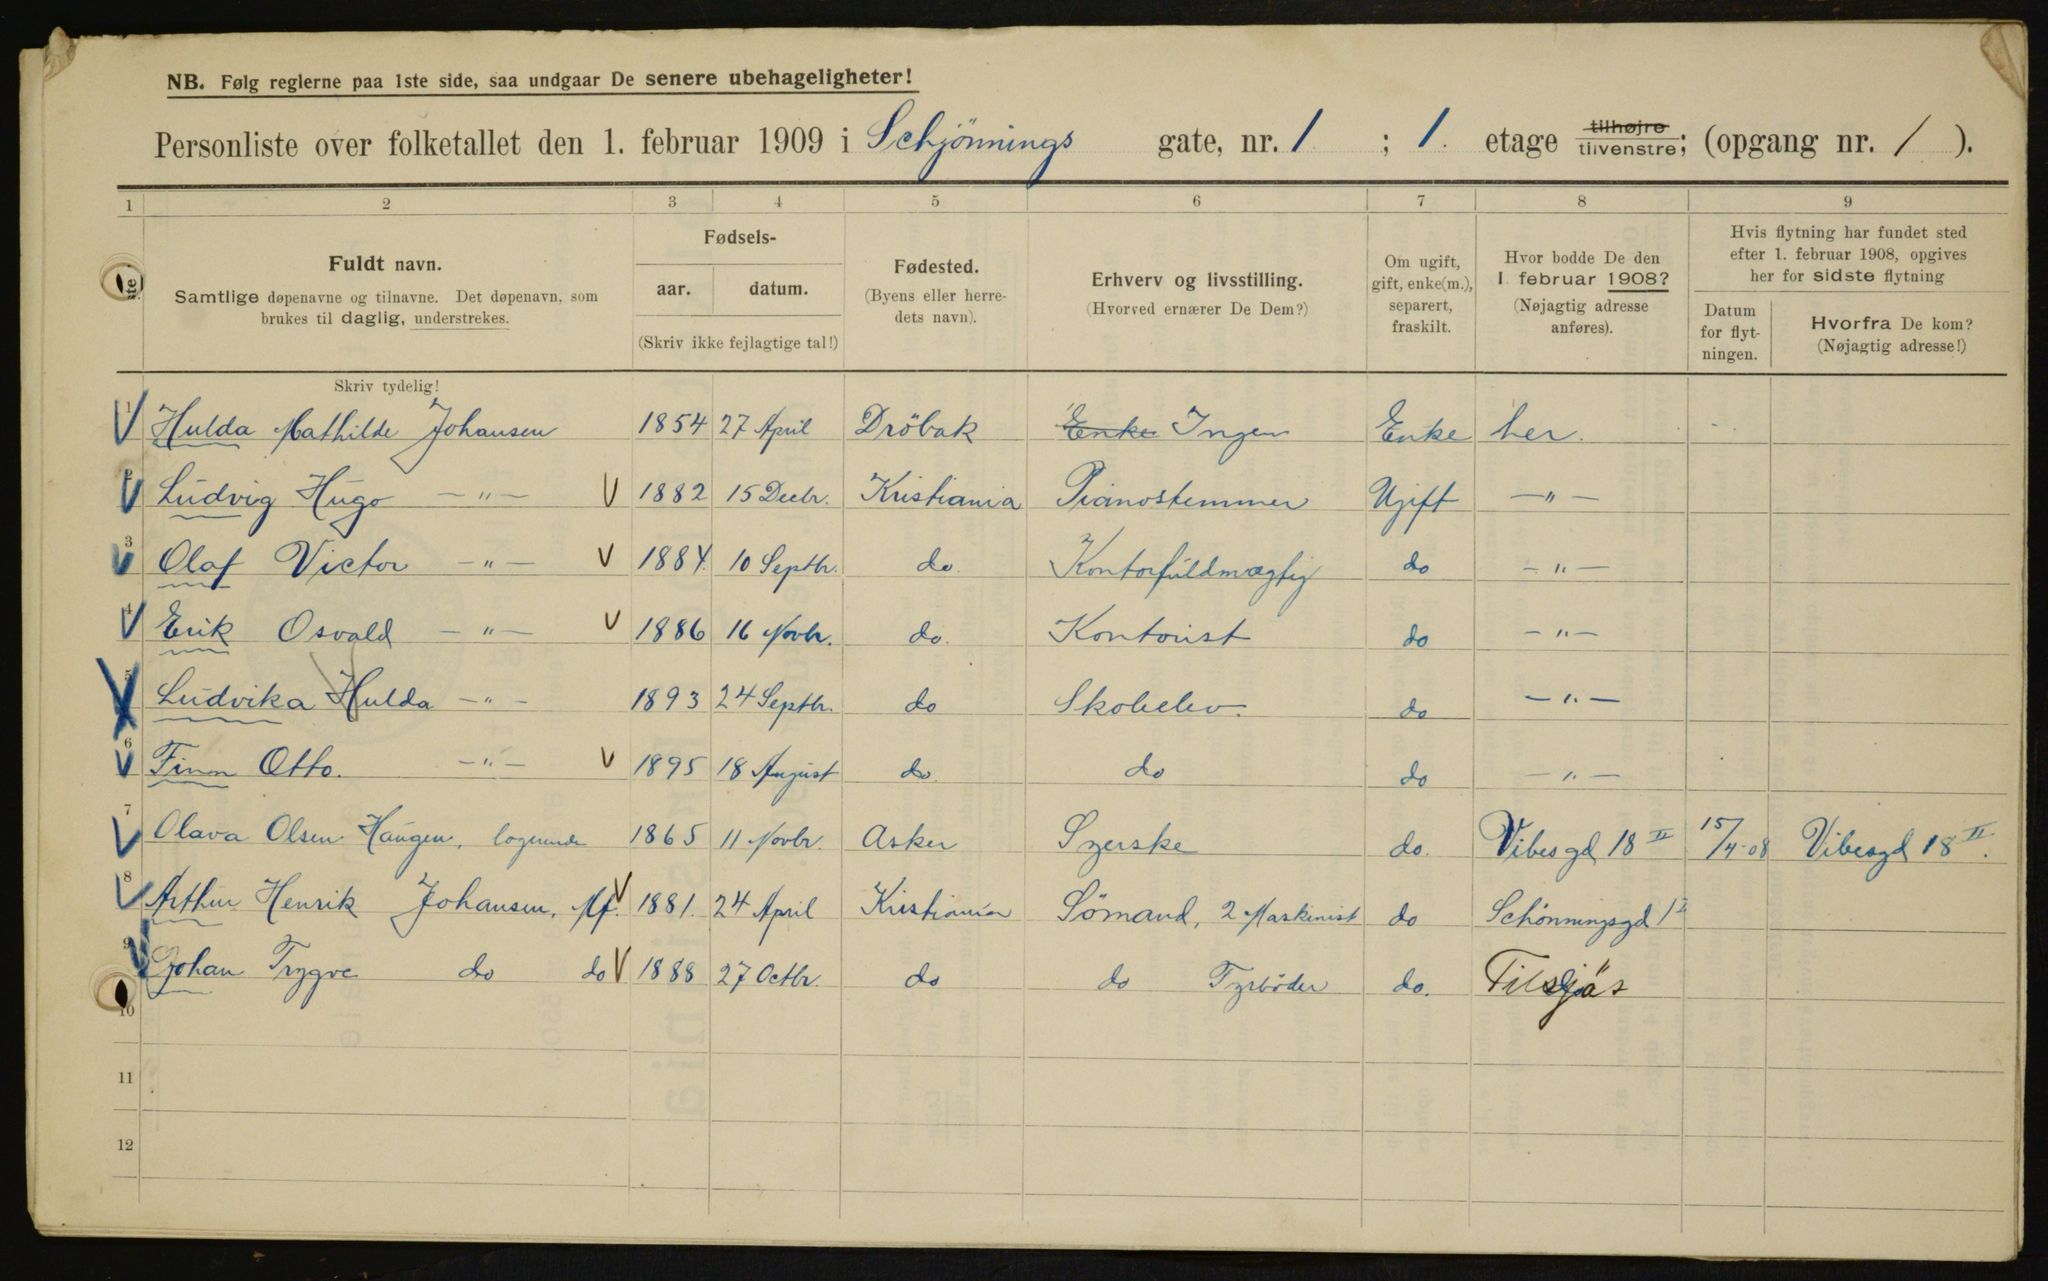 NB. Følg reglerne paa 1ste side, saa undgaar De senere ubehageligheter!
Personliste over folketallet den 1. februar 1909 i Schjönnings gate, nr. 1 ; 1. etage tilhøjre tilvenstre; (opgang nr. 1 ).
1 2 3 4 5 6 7 8 9
Fuldt navn.
Samtlige døpenavne og tilnavne. Det døpenavn, som
brukes til daglig, understrekes.
Skriv tydelig!
Fødsels-
aar. datum.
(Skriv ikke fejlagtige tal!)
Fødested.
(Byens eller herre-
dets navn).
Erhverv og livsstilling.
(Hvorved ernærer De Dem?)
Om ugift,
gift, enke(m.),
separert,
fraskilt.
Hvor bodde De den
1. februar 1908?
(Nøjagtig adresse
anføres).
Hvis flytning har fundet sted
efter 1. februar 1908, opgives
her for sidste flytning
Datum
for flyt-
ningen.
Hvorfra De kom?
(Nøjagtig adresse!)
1 Hulda Mathilde Johansen 1854 27 April Dröbak Enke Ingen Enke her.
2 Ludvig Hugo —"— V 1882 15 Decbr. Kristiania Pianostemmer Ugift —"—
3 Olaf Victor —"— V 1884. 10 Septbr. do. Kontorfuldmægtig do —"—
4 Erik Osvald —"— V 1886 16 Novbr. do. Kontorist do —"—
5 Ludvika Hulda —"— 1893 24 Septbr. do Skoleelev. do —"—
6 Finn Otto. —"— V 1895 18 August do. do do —"—
7 Olava Olsen Haugen, logerende 1865 11 Novbr. Asker Syerske do. Vibesgd 18 II 15/4-08 Vibesgd 18 II.
8 Arthur Henrik Johansen, Mf. V 1881. 24 April Kristiania Sömand, 2 Maskinist do Schönningsgd 1 I
9 Johan Trygve do do V 1888 27 Octbr. do do Fyrböder do. Tilsjös
10
11
12